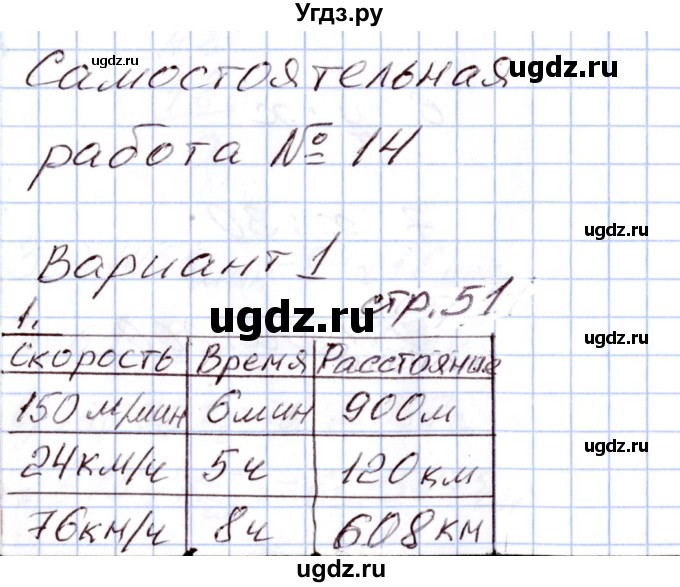 Угдз.ру
ugdz.ru
ugdz.ru
Самостоятельная
ugdz.ru
работа № 14
ugdz.ru
Вариант 1
1.
стр. 51
ugdz.ru
ugdz.ru
Скорость Время Расстояние
150 м/мин 6 мин 900 м
ugdz.ru
24 км/ч 5 ч 120 км
76 км/ч 8 ч 608 км
ugdz.ru
ugdz.ru
ugdz.ru